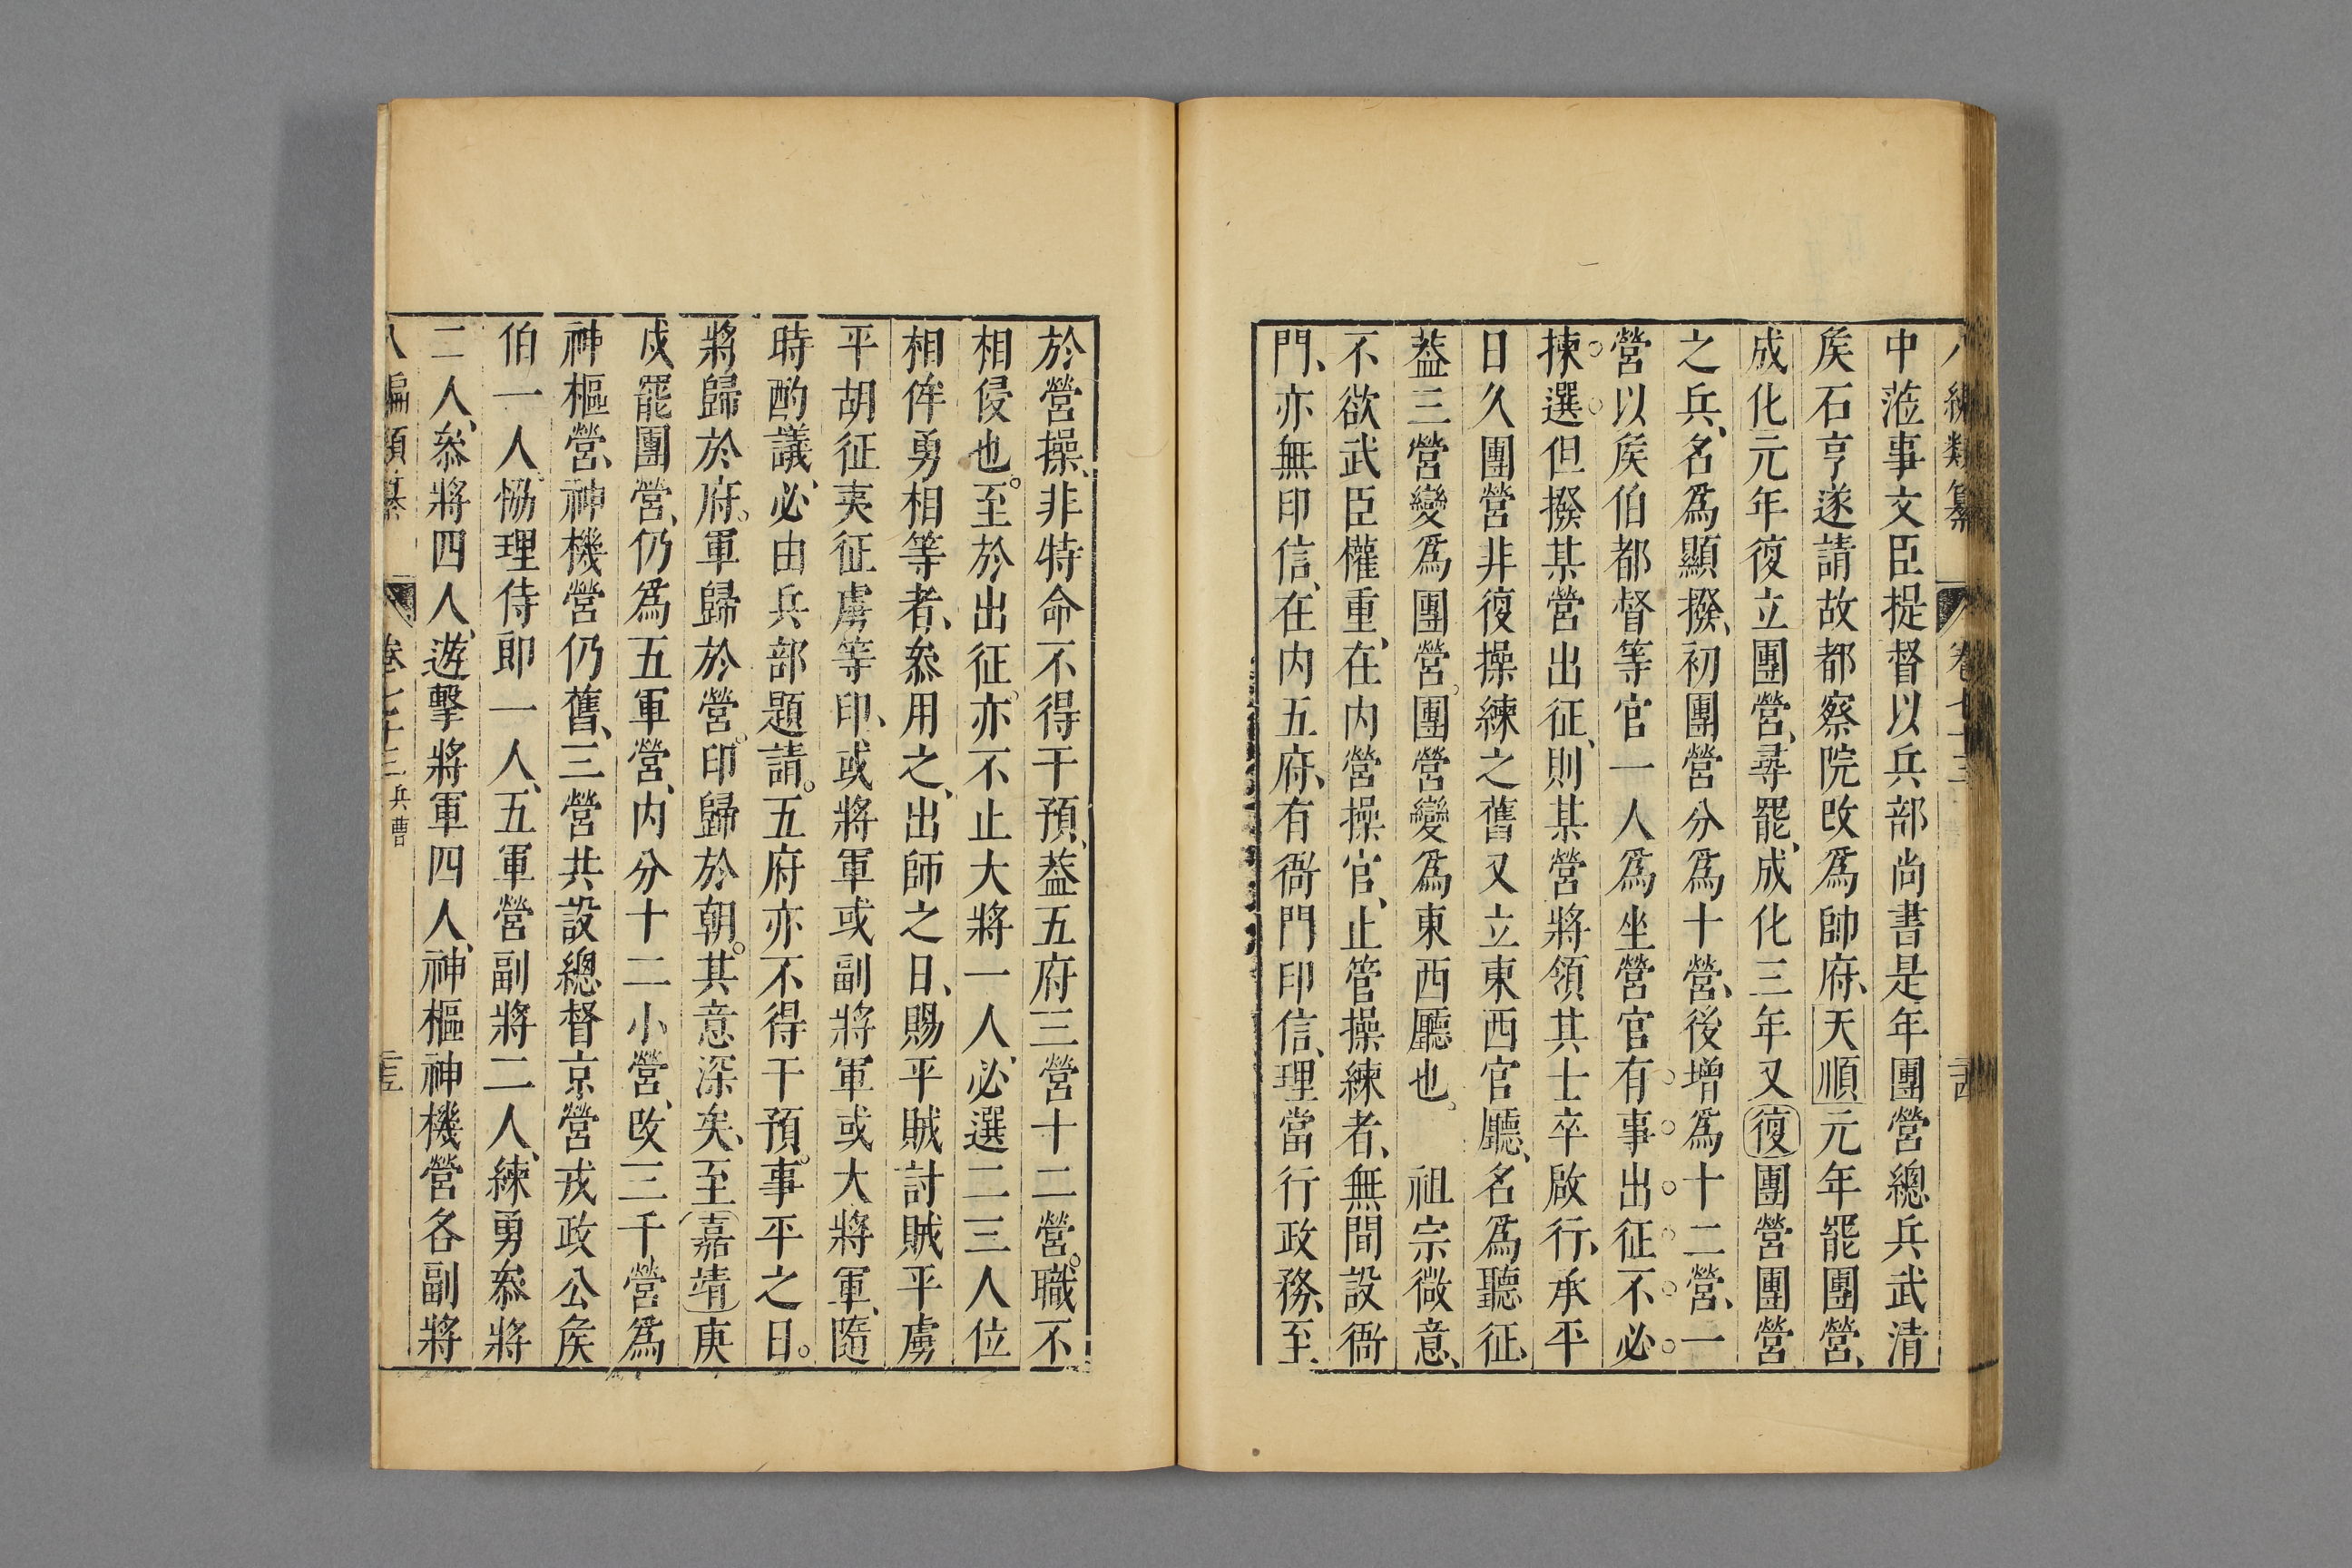 八編類纂 卷七十三 二十四
中蒞事文臣提督以兵部尚書是年團營總兵武清
矦石亨遂請故都察院改爲帥府、天順元年罷團營、
成化元年復立團營、尋罷、成化三年又復團營團營
之兵、名爲顯撥、初團營分爲十營、後增爲十二營、一
營以矦伯都督等官一人爲坐營官有事出征不必
揀選但撥某營出征、則某營將領其士卒啟行、承平
日久團營非復操練之舊又立東西官廳、名爲聽征、
葢三營變爲團營。團營變爲東西廳也。 祖宗微意、
不欲武臣權重、在内營操官、止管操練者、無間設衙
門、亦無印信、在内五府、有衙門印信、理當行政務、至
於營操、非特命不得干預、葢五府三營十二營。職不
相侵也。至於出征。亦不止大將一人、必選二三人位
相侔勇相等者、叅用之、出師之日、賜平賊討賊平虜
平胡征夷征虜等印、或將軍或副將軍或大將軍、隨
時酌議、必由兵部題請。五府亦不得干預。事平之日。
將歸於府。軍歸於營。印歸於朝。其意深矣、至嘉靖庚
戌、罷團營、仍爲五軍營、内分十二小營、改三千營爲
神樞營、神機營仍舊、三營共設總督京營戎政公矦
伯一人、恊理侍郎一人、五軍營副將二人、練勇叅將
二人、叅將四人、遊擊將軍四人、神樞神機營各副將
八編類纂 卷七十三 兵曹 二十五